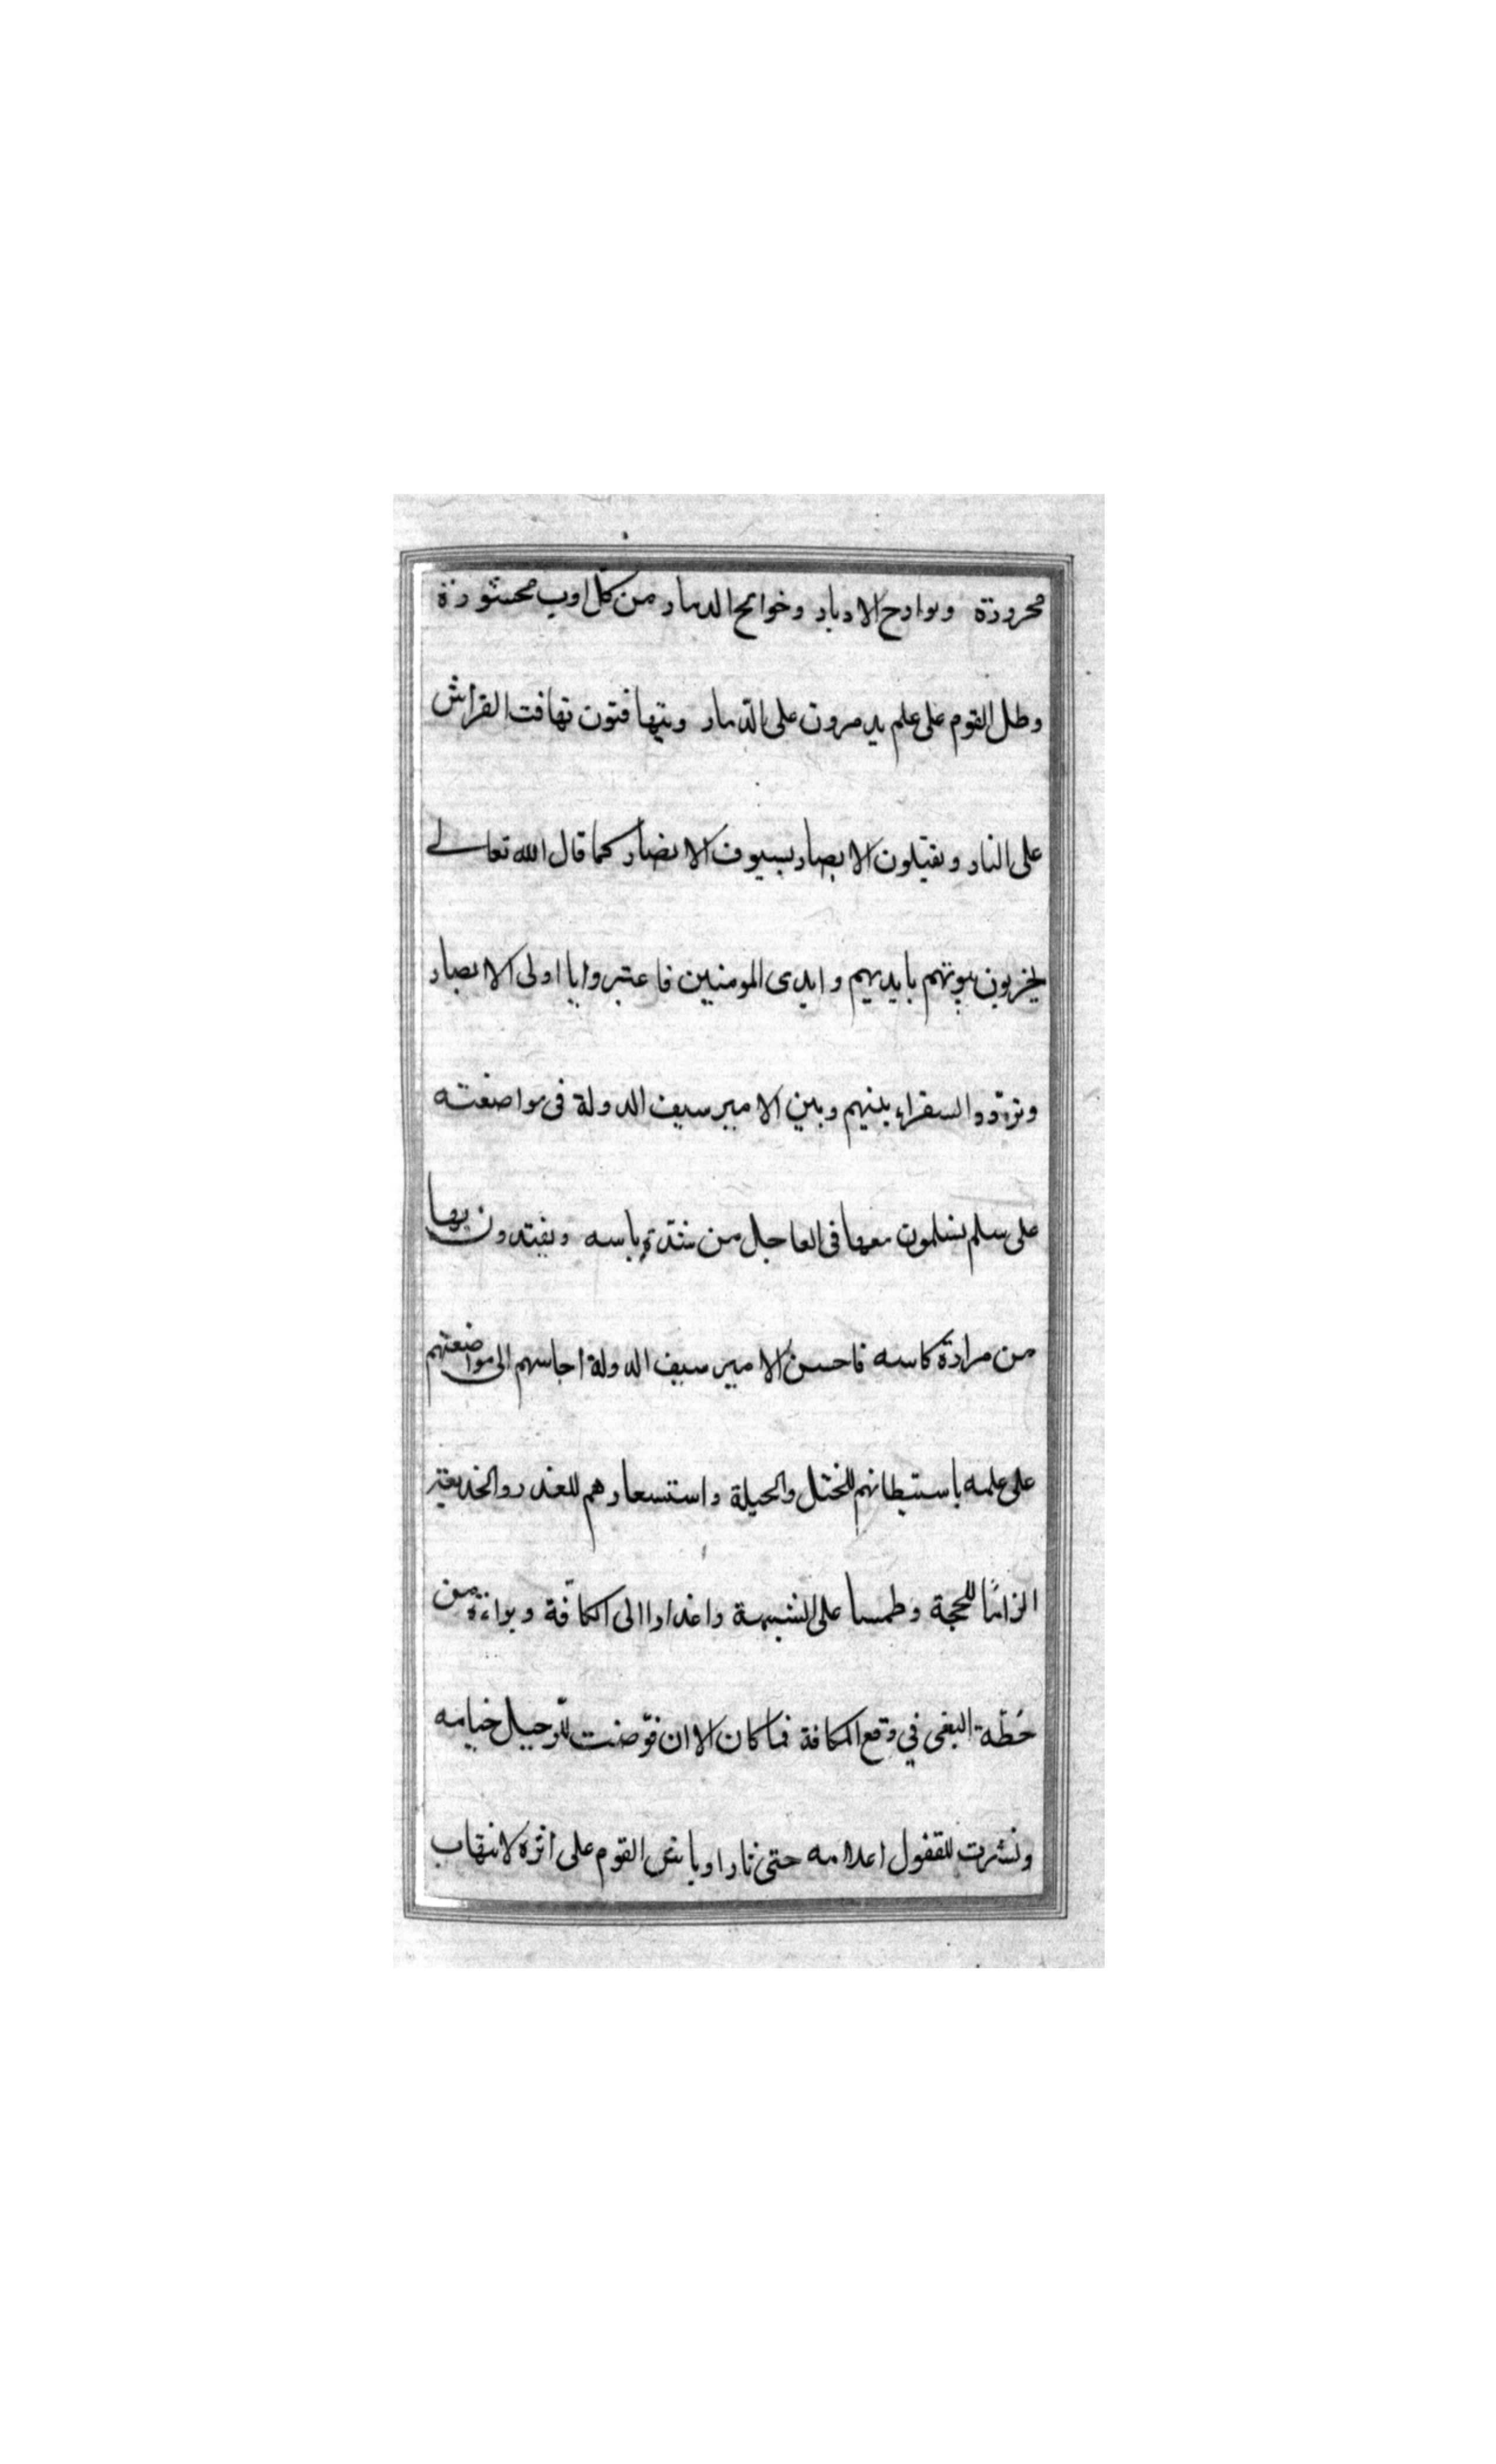 محروزة وبوارح الادبار وخوانح الدمار من كل اوب محشورة
وظل القوم على علم يدمرون على الدمار ويتهافتون تهافت الفراش
على النار ويقتلون الابصار بسيوف الانصار كما قال الله تعالى
يخربون بيوتهم بايديهم وايدى المومنين فاعتبروا يا اولى الابصار
وتردد السفراء بينهم وبين الامير سيف الدولة فى مواضعته
على سلم يسلمون معها فى العاجل من شدة باسه ويفتدون بها
من مرارة كاسه فاحسن الامير سيف الدولة اجابتهم الى مواضعتهم
على علمه باستبطانهم للختل والحيلة واستشعارهم للغدر والخديعة
الزاما للحجة وطمسا على الشبهة واعذارا الى الكافة وبراءة من
خطة البغى في وقع المكافة فما كان الا ان قوضت للرحيل خيامه
ونشرت للقفول اعلامه حتى ثار اوباش القوم على اثره لانتهاب